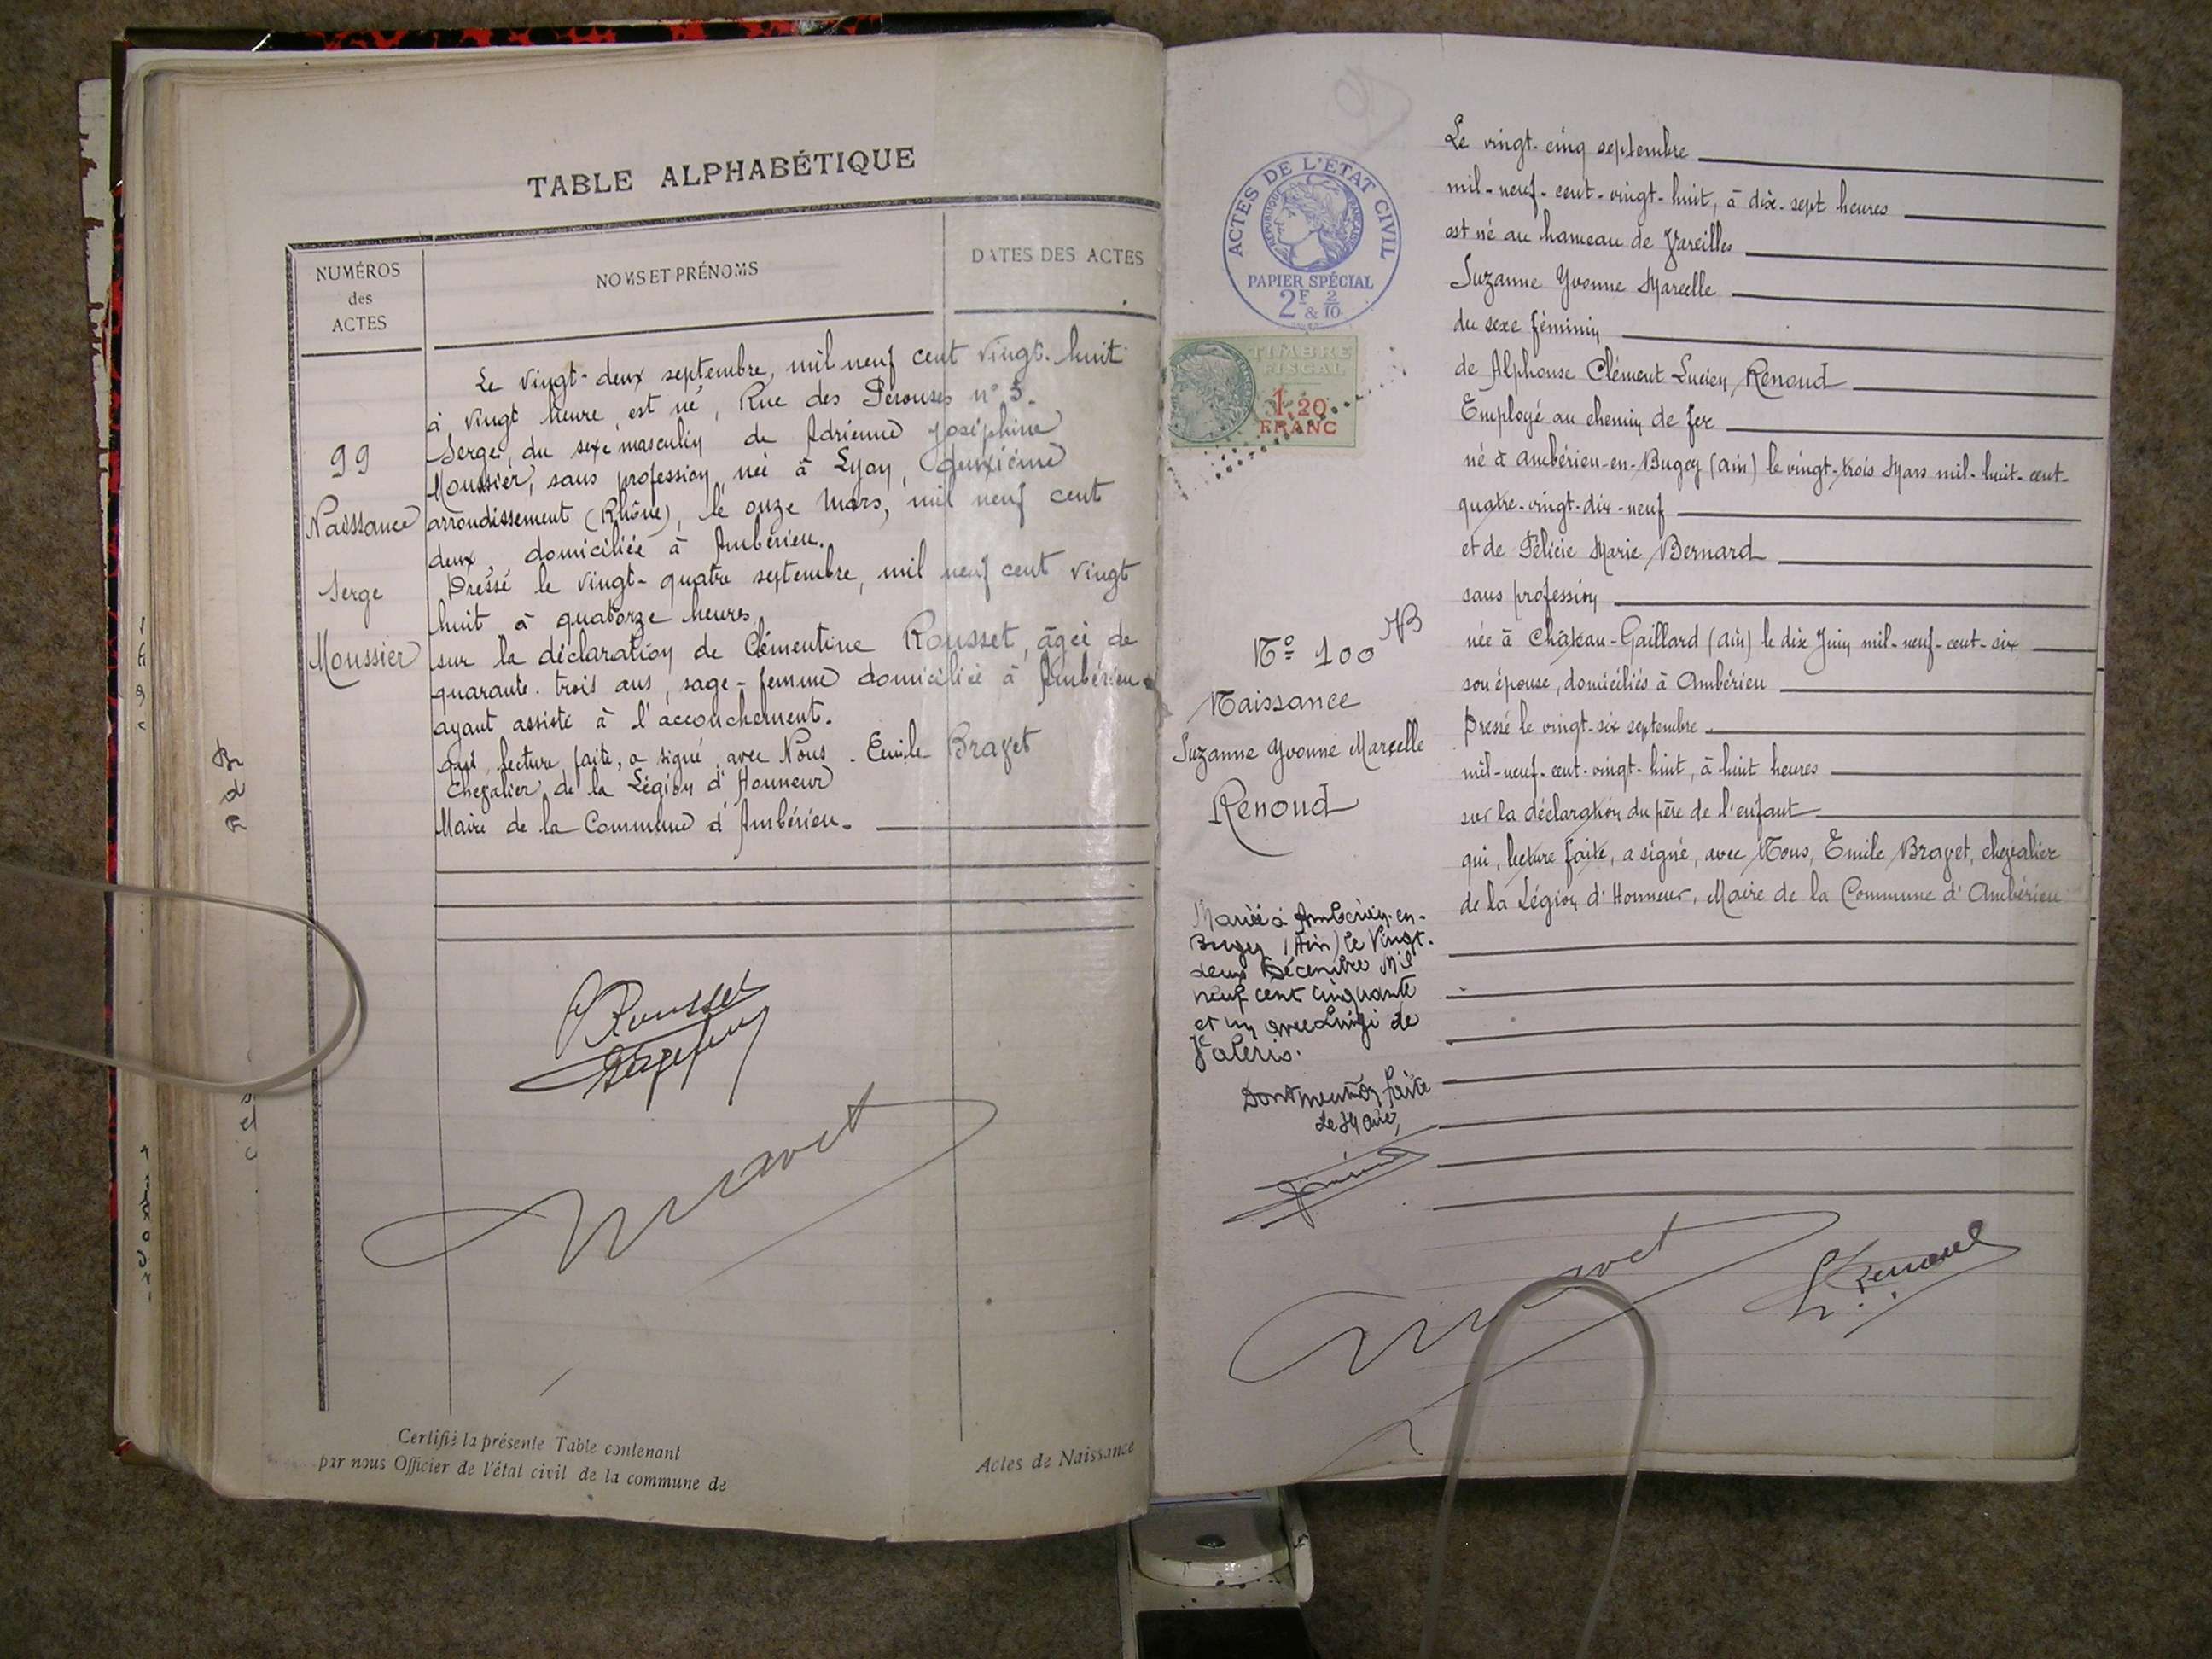 TABLE ALPHABÉTIQUE
NUMÉROS
des
ACTES
NOMS ET PRÉNOMS
DATES DES ACTES
99
Naissance
Serge
Moussier
Le vingt-deux septembre, mil neuf cent vingt-huit
à vingt heure, est né, Rue des Pérouses n° 5.
Serge, du sexe masculin de Adrienne Joséphine
Moussier, sans profession, née à Lyon, deuxième
arrondissement (Rhône), le onze Mars, mil neuf cent
deux, domiciliée à Ambérieu.
Dressé le vingt-quatre septembre, mil neuf cent vingt
huit à quatorze heures,
sur la déclaration de Clémentine Rousset, âgée de
quarante-trois ans, sage-femme domiciliée à Ambérieu
ayant assisté à l'accouchement.
qui, lecture faite, a signé, avec Nous. Emile Bravet
Chevalier de la Légion d'Honneur
Maire de la Commune d'Ambérieu.
Rousset
Bravet
Certifié la présente Table contenant
par nous Officier de l'état civil de la commune de
Actes de Naissance
ACTES DE L'ÉTAT CIVIL
RÉPUBLIQUE FRANÇAISE
PAPIER SPÉCIAL
2F & 2/10
TIMBRE
FISCAL
1,20
FRANC
N° 100
Naissance
Suzanne Yvonne Marcelle
Renoud
Mariée à Ambérieu-en-
Bugey (Ain) le Vingt-
deux Décembre Mil
neuf cent cinquante
et un avec Luigi de
Valerio.
Dont mention faite
Le Maire,
Le vingt-cinq septembre
mil-neuf-cent-vingt-huit, à dix-sept heures
est né au hameau de Vareilles
Suzanne Yvonne Marcelle
du sexe féminin
de Alphonse Clément Lucien Renoud
Employé au chemin de fer
né à Ambérieu-en-Bugey (Ain) le vingt-trois Mars mil-huit-cent-
quatre-vingt-dix-neuf
et de Félicie Marie Bernard
sans profession
née à Château-Gaillard (Ain) le dix Juin mil-neuf-cent-six
son épouse, domiciliés à Ambérieu
Dressé le vingt-six septembre
mil-neuf-cent-vingt-huit, à huit heures
sur la déclaration du père de l'enfant
qui, lecture faite, a signé, avec Nous, Emile Bravet, chevalier
de la Légion d'Honneur, Maire de la Commune d'Ambérieu
Bravet
Renoud